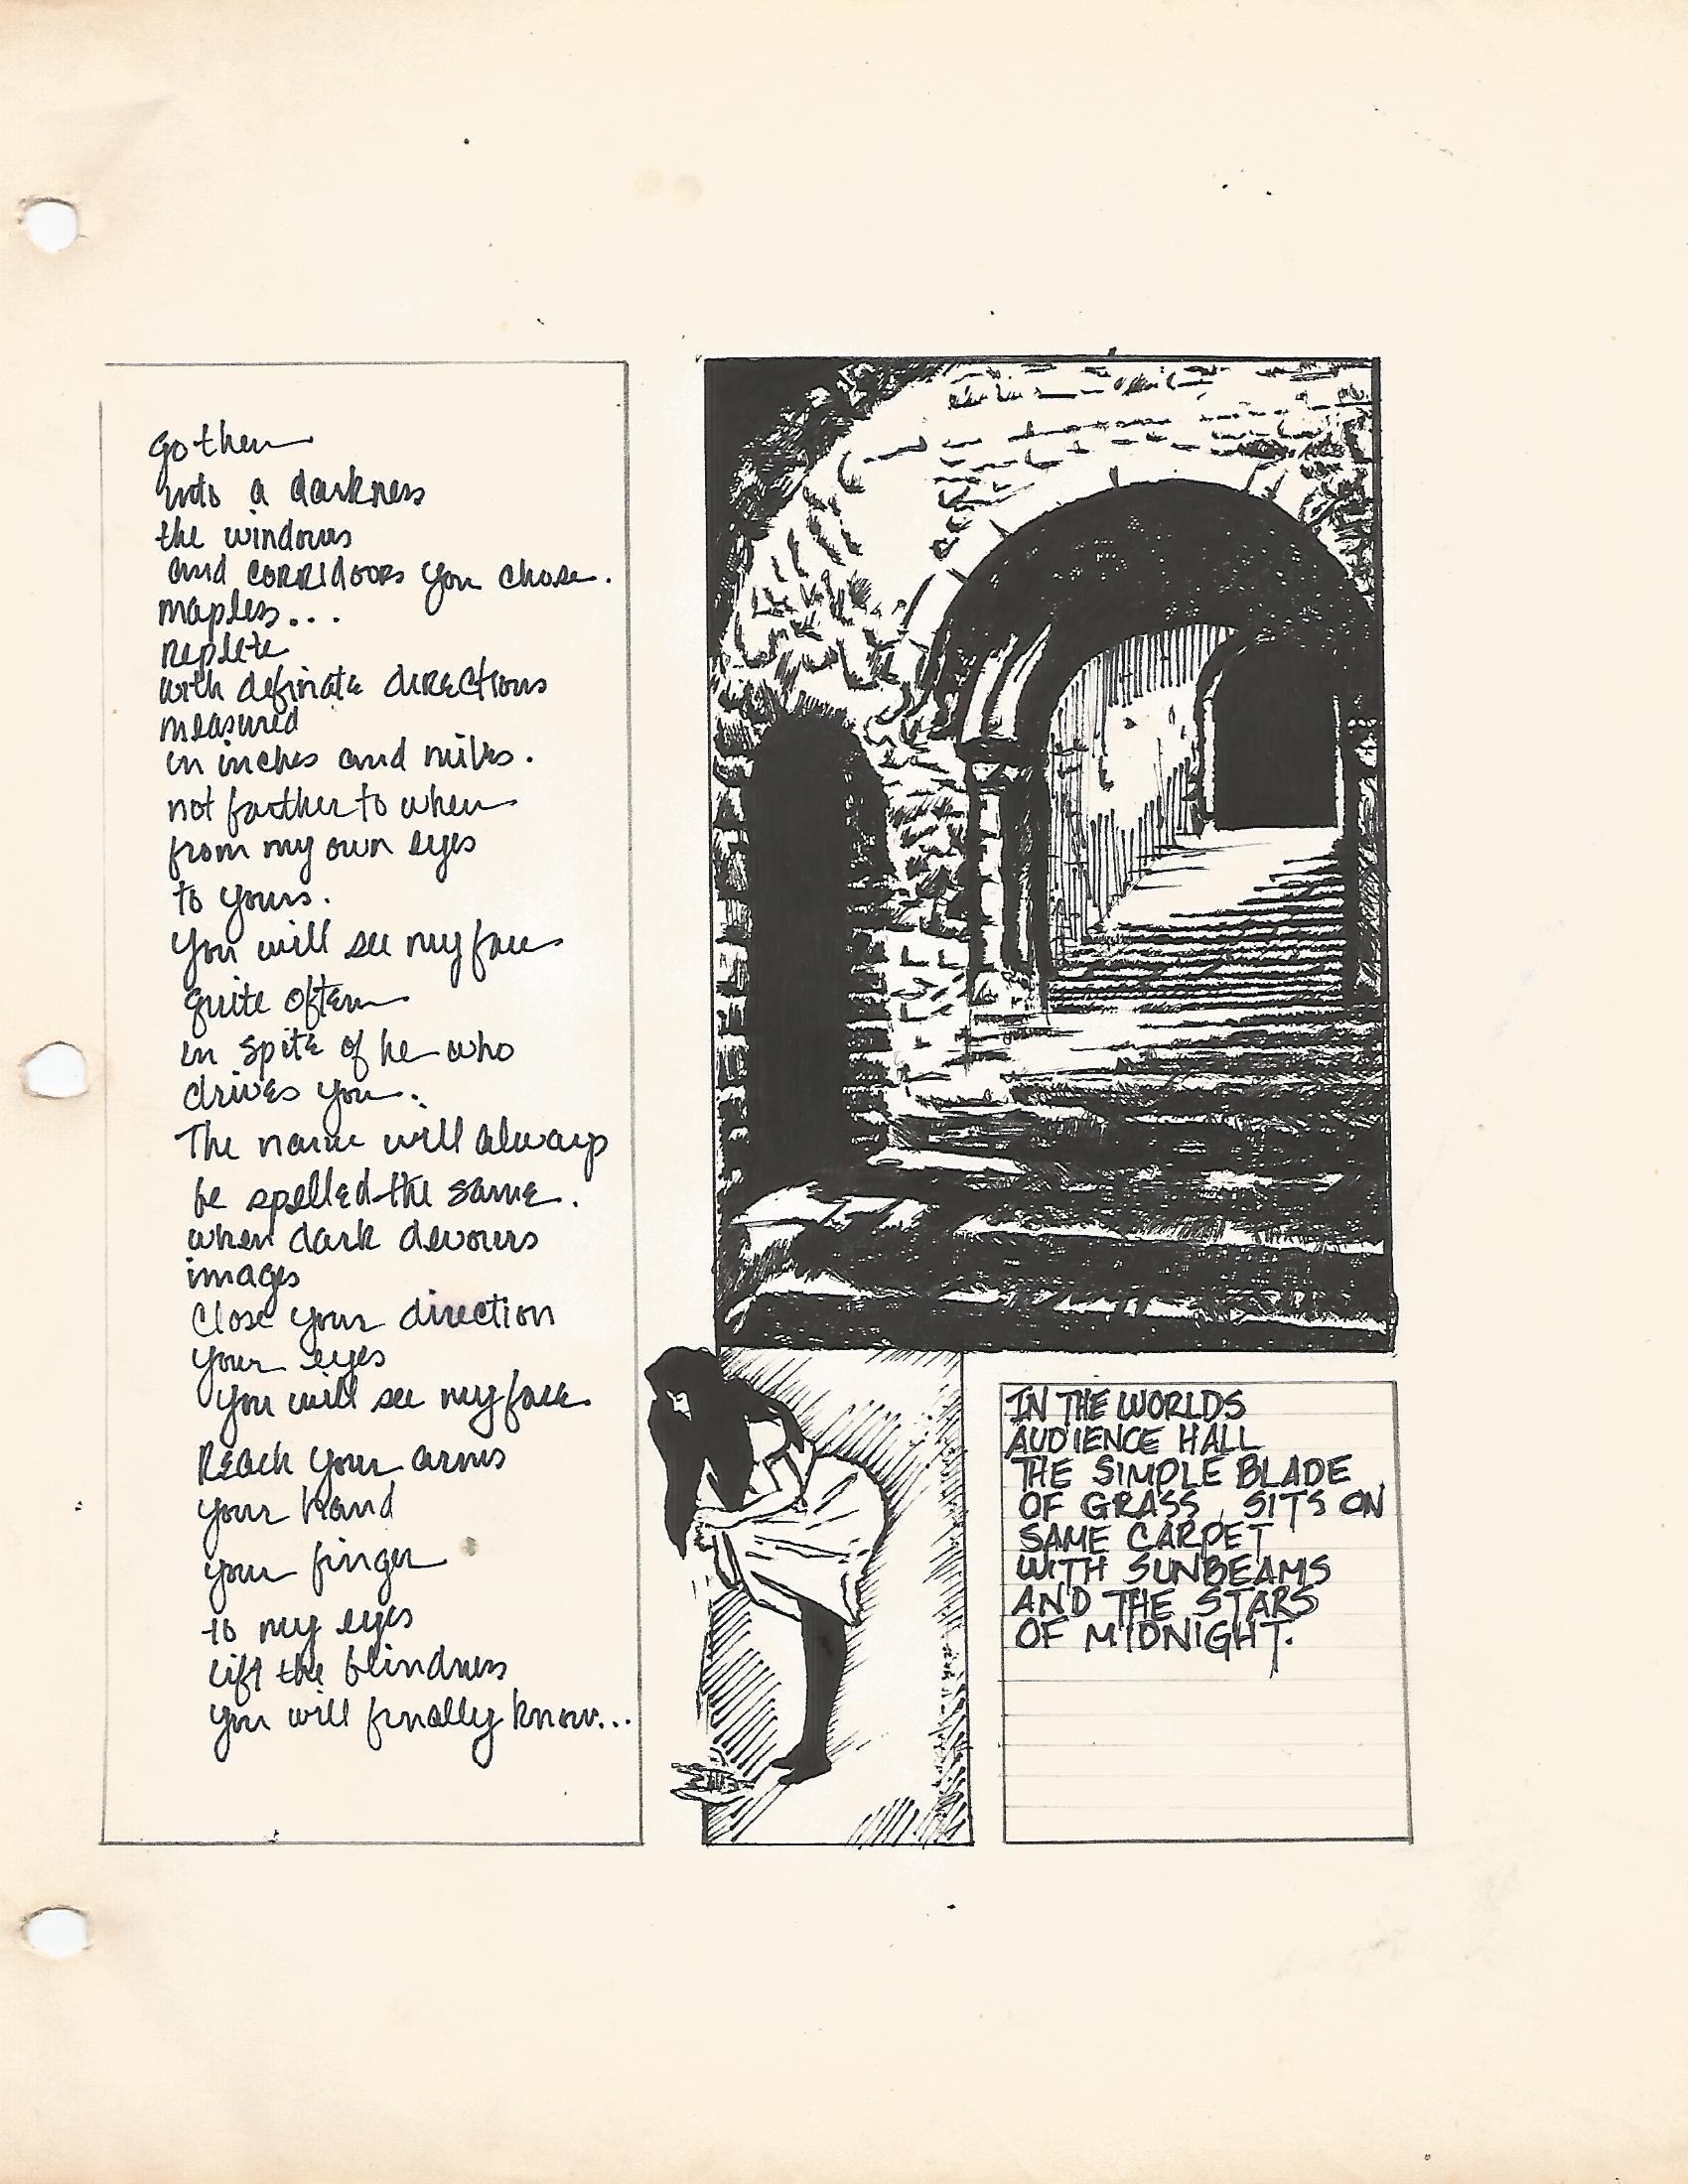 go then
into a darkness
the windows
and corridoors you chose.
mapless...
replete
with definate directions
measured
in inches and miles.
not farther to when
from my own eyes
to yours.
you will see my face
quite often
in spite of he who
drives you.
The name will always
be spelled the same.
when dark devours
images
Close your direction
your eyes
you will see my face.
Reach your arms
your hand
your finger
to my eyes
lift the blindness
you will finally know...
IN THE WORLDS
AUDIENCE HALL
THE SIMPLE BLADE
OF GRASS, SITS ON
SAME CARPET
WITH SUNBEAMS
AND THE STARS
OF MIDNIGHT.